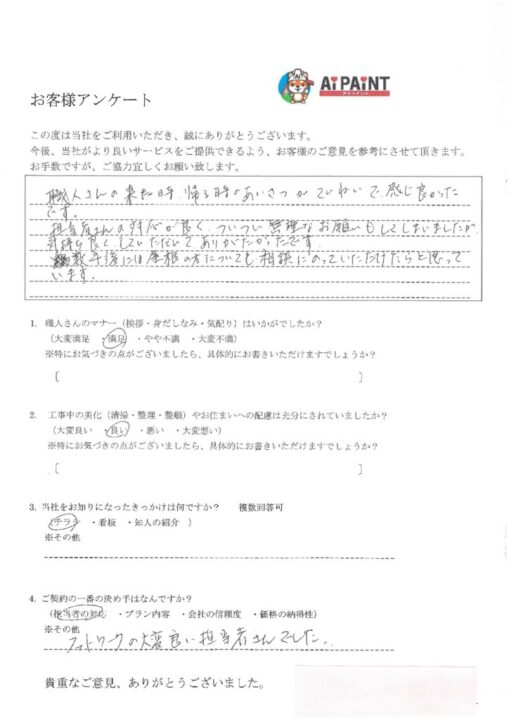 AiPAiNT
アイペイント
お客様アンケート
この度は当社をご利用いただき、誠にありがとうございます。
今後、当社がより良いサービスをご提供できるよう、お客様のご意見を参考にさせて頂きます。
お手数ですが、ご協力宜しくお願い致します。
職人さんの来た時、帰る時のあいさつがていねいで感じ良かった
です。
担当者さんの対応が良く、ついつい無理なお願いもしてしまいましたが
気持ち良くしていただいてありがたかったです。
数年後には屋根の方についても相談にのっていただけたらと思って
います。
1. 職人さんのマナー（挨拶・身だしなみ・気配り）はいかがでしたか？
（大変満足 ・満足 ・やや不満 ・大変不満）
※特にお気づきの点がございましたら、具体的にお書きいただけますでしょうか？
[ ]
2. 工事中の美化（清掃・整理・整頓）やお住まいへの配慮は充分にされていましたか？
（大変良い ・良い ・悪い ・大変悪い）
※特にお気づきの点がございましたら、具体的にお書きいただけますでしょうか？
[ ]
3. 当社をお知りになったきっかけは何ですか？ 複数回答可
（チラシ ・看板 ・知人の紹介 ）
※その他
4. ご契約の一番の決め手はなんですか？
（担当者の対応 ・プラン内容 ・会社の信頼度 ・価格の納得性）
※その他
フットワークの大変良い担当者さんでした。
貴重なご意見、ありがとうございました。